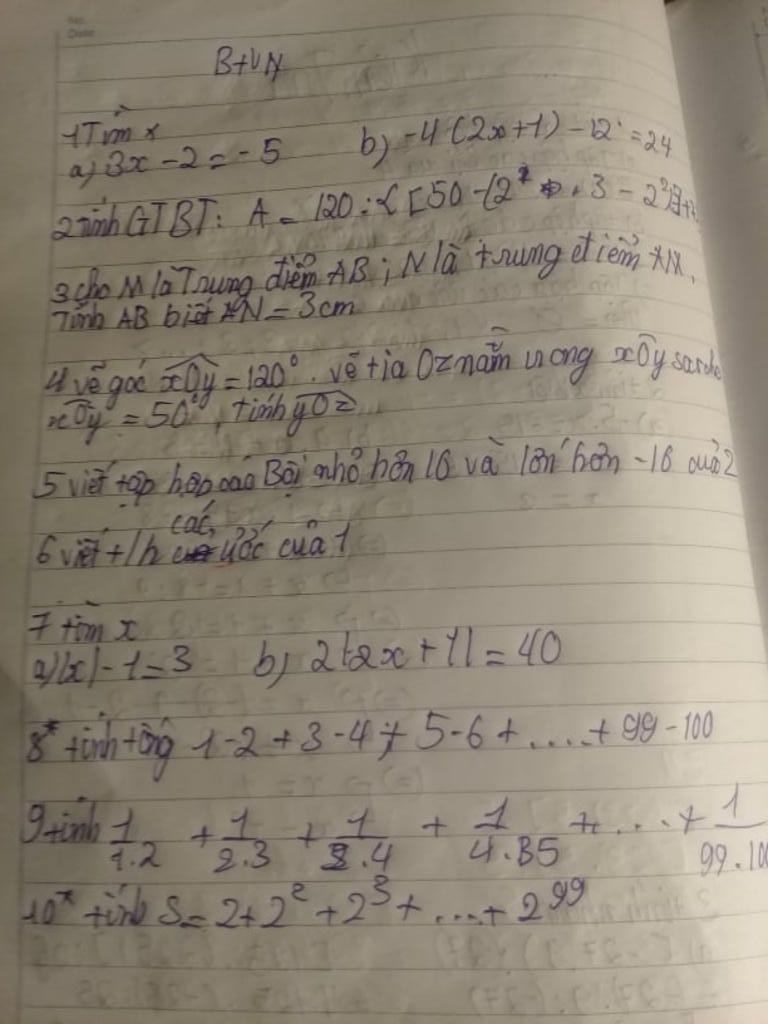 No.
Date
B+VN
1 Tìm x
a) 3x - 2 = - 5 b) -4 (2x+1) - 12 = 24
2 tính GTBT: A = 120 : { [50 - (2² . 3 - 2²)]
3 cho M là Trung điểm AB ; N là trung điểm AM.
Tính AB biết AN = 3cm
4 vẽ góc xOy = 120° . vẽ tia Oz nằm trong xOy sao cho
xOy = 50°, tính yOz
5 viết tập hợp các Bội nhỏ hơn 16 và lớn hơn -16 của 2
6 viết t/h các ước của 1
7 tìm x
a) |x| - 1 = 3 b) 2|-2x + 1| = 40
8* tính tổng 1-2 + 3-4 + 5-6 + ..... + 99-100
9 tính 1/1.2 + 1/2.3 + 1/3.4 + 1/4.5 + ... + 1/99.100
10* tính S = 2+2² +2³ + ... + 2⁹⁹